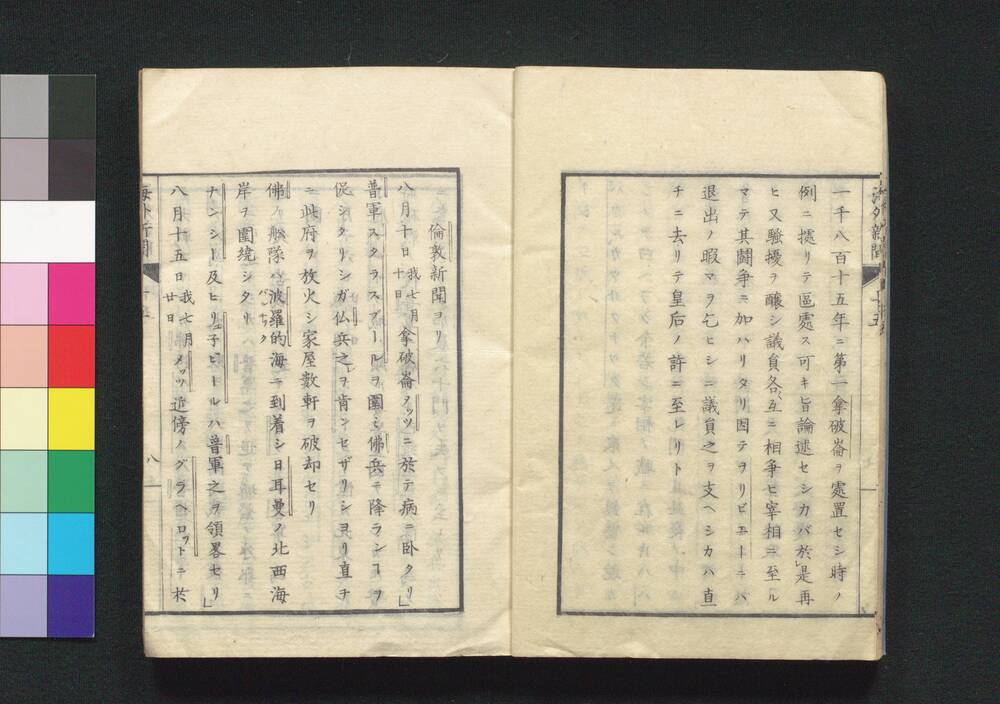 一千八百十五年ニ第一拿破崙ヲ處置セシ時ノ
例ニ據リテ區處ス可キ旨論述セシカバ於是再
ヒ又騒擾ヲ釀シ議員各々互ニ相爭ヒ宰相ニ至ル
マテ其闘爭ニ加ハリタリ因テヲリビエートニハ
退出ノ暇マヲ乞ヒシニ議員之ヲ支ヘシカハ直
チニ去リテ皇后ノ許ニ至レリト
倫敦新聞ヨリ
八月十日我七月十日拿破崙メッツニ於テ病ニ臥タリ」
普軍スタラスブールヲ圍ミ佛兵ニ降ランコヲ
促シタリシガ仏兵之ヲ肯ンセザリシヨリ直チ
ニ此府ヲ放火シ家屋数軒ヲ破却セリ
佛ノ舩隊ハ波羅的海ニ到着シ日耳曼ノ北西海
岸ヲ圍繞シタリ
ナンシー及ヒリュ子ビールハ普軍之ヲ領畧セリ」
八月十五日我七月廿日メッツ近傍ノグラヘロットニ於
海外新聞
八